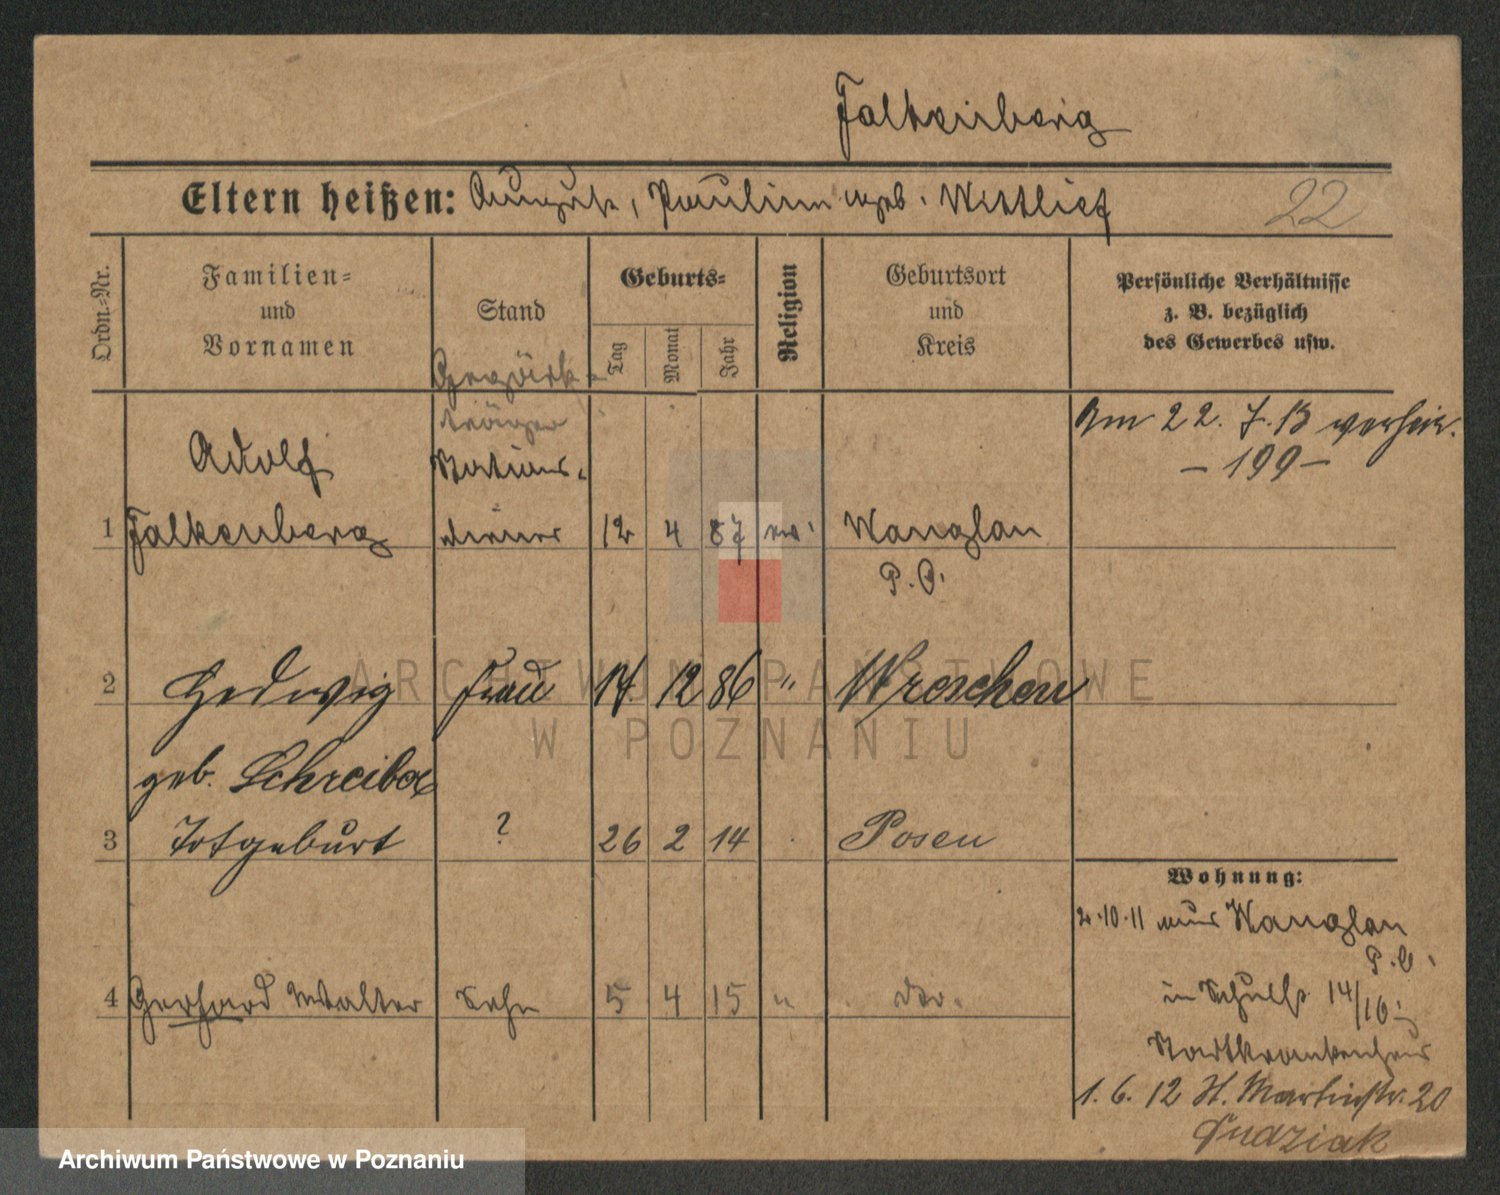 Falkenberg
Eltern heißen: August, Pauline geb. Wittlief
22
Ordn.-Nr.
Familien-
und
Vornamen
Stand
Geburts-
Tag
Monat
Jahr
Religion
Geburtsort
und
Kreis
Persönliche Verhältnisse
z. B. bezüglich
des Gewerbes usw.
Gepäck-
träger
Adolf
Stations-
1 Falkenberg diener 12 4 87 ev. Wonglau
P. O.
Am 22. 7. 13 verheir.
- 199 -
2 Hedwig Frau 17. 12 86 " Wreschen
geb. Schreiber
3 Totgeburt ? 26 2 14 Posen
4 Gerhard Walter Sohn 5 4 15 " do.
Wohnung:
2.10.11 aus
P. O.
in 14/10
Stadtkrankenhaus
1. 6. 12 St. Martinstr. 20
ARCHIWUM PAŃSTWOWE
W POZNANIU
Archiwum Państwowe w Poznaniu